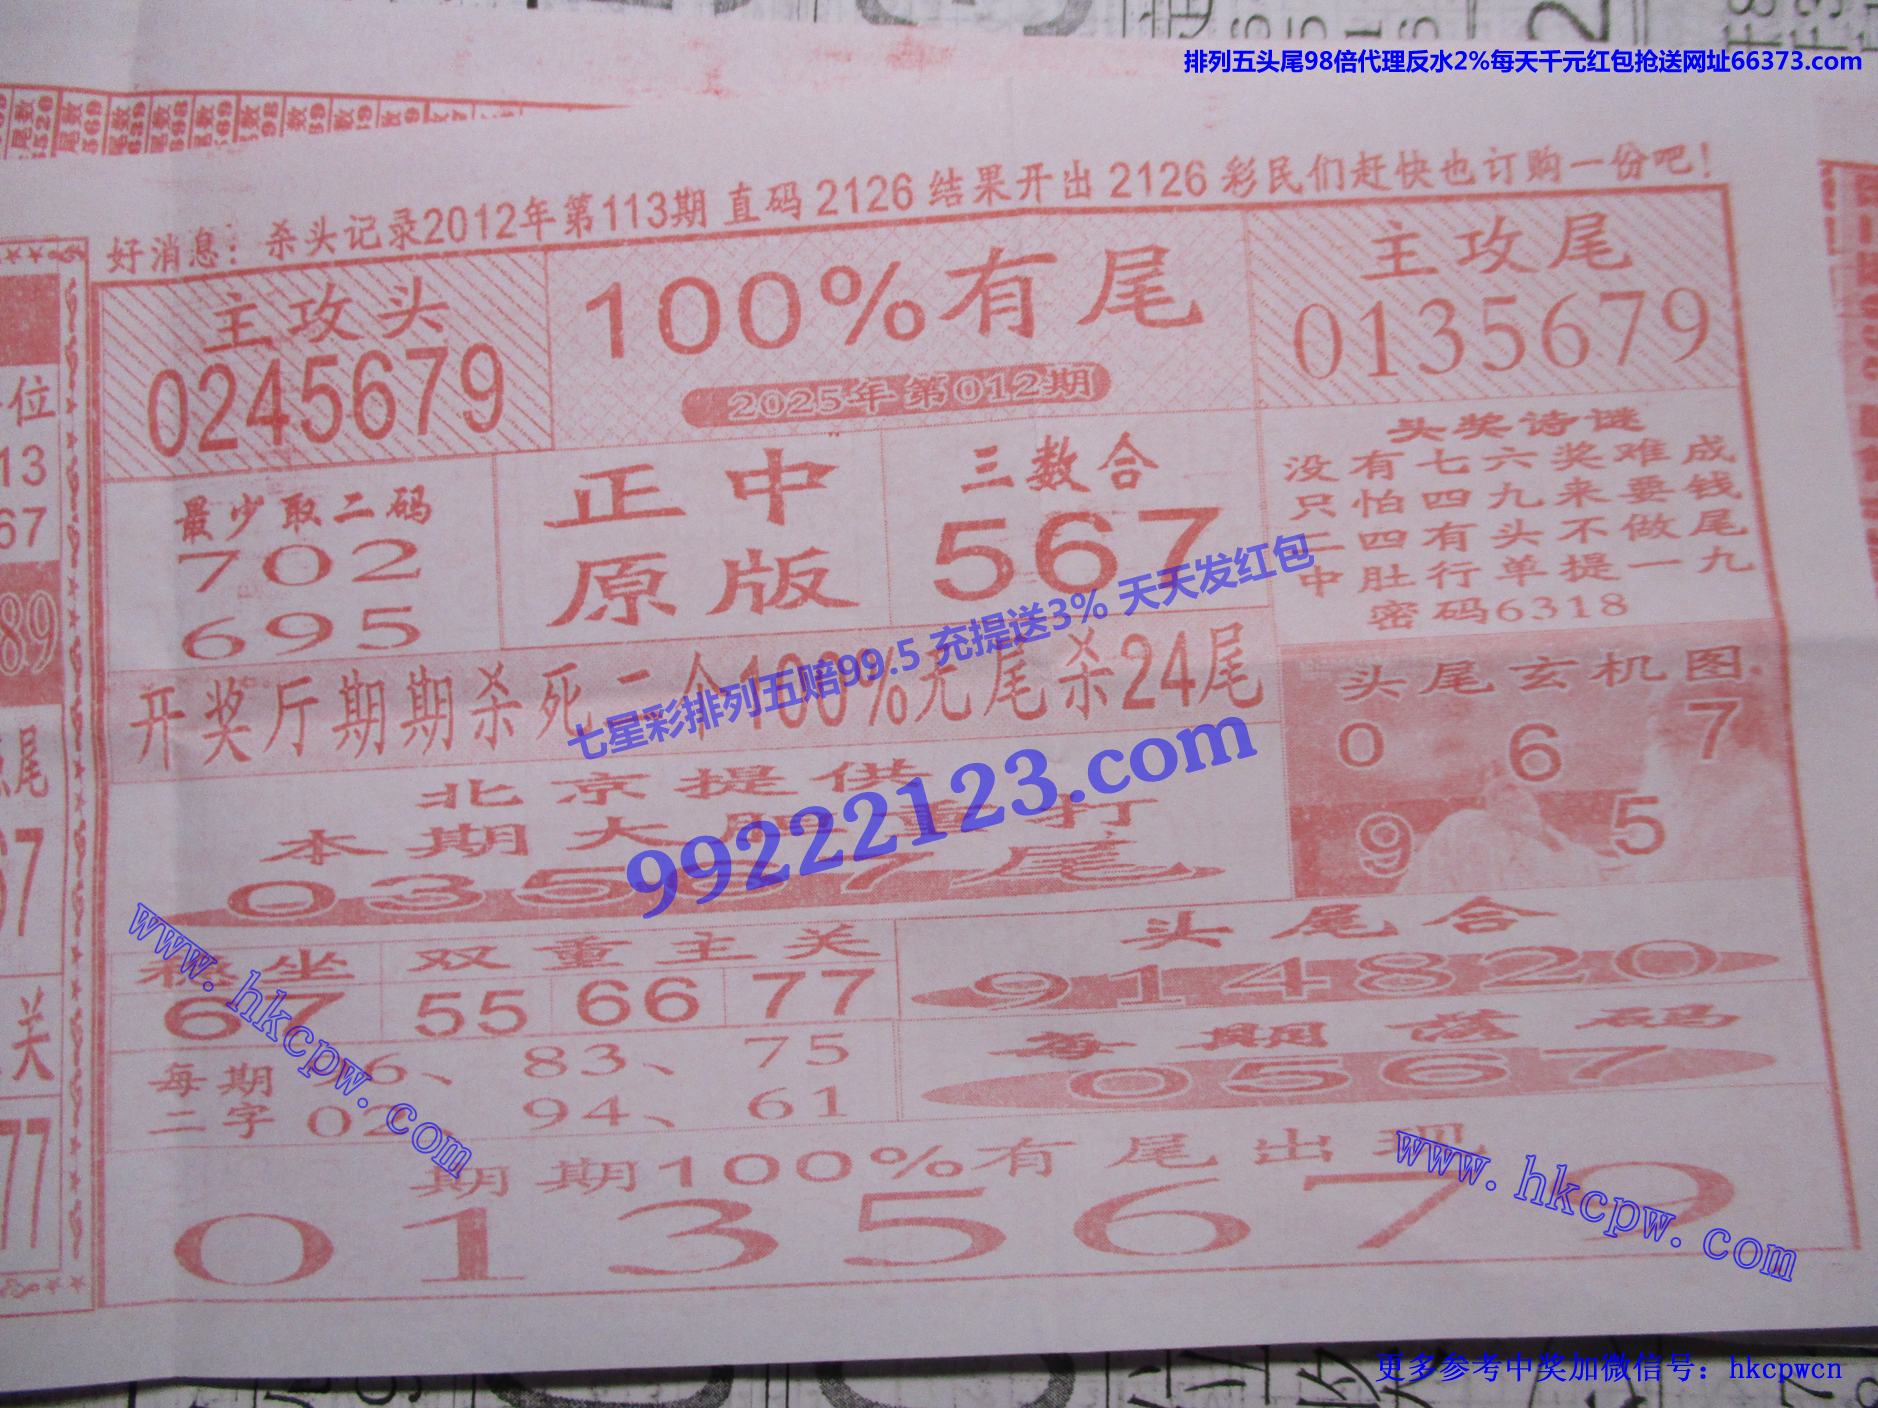 排列五头尾98倍代理反水2%每天千元红包抢送网址66373.com
好消息：杀头记录2012年第113期 直码 2126 结果开出 2126 彩民们赶快也订购一份吧！
主攻头
0245679
100%有尾
2025年第012期
主攻尾
0135679
最少取二码
702
695
正中
原版
三数合
567
头奖诗谜
没有七六奖难成
只怕四九来要钱
二四有头不做尾
中肚行单提一九
密码6318
开奖厅期期杀死二个100%无尾杀24尾
七星彩排列五赔99.5 充提送3% 天天发红包
99222123.com
头尾玄机图
0 6 7
9 5
北京提供
本期大胆重打
035 7尾
稳坐
67
双重主关
55 66 77
头尾合
914820
每期
二字
6、83、75
02、94、61
每期落码
0567
期期100%有尾出现
0135679
www.hkcpw.com
www.hkcpw.com
位
13
67
89
尾
67
关
77
更多参考中奖加微信号：hkcpwcn